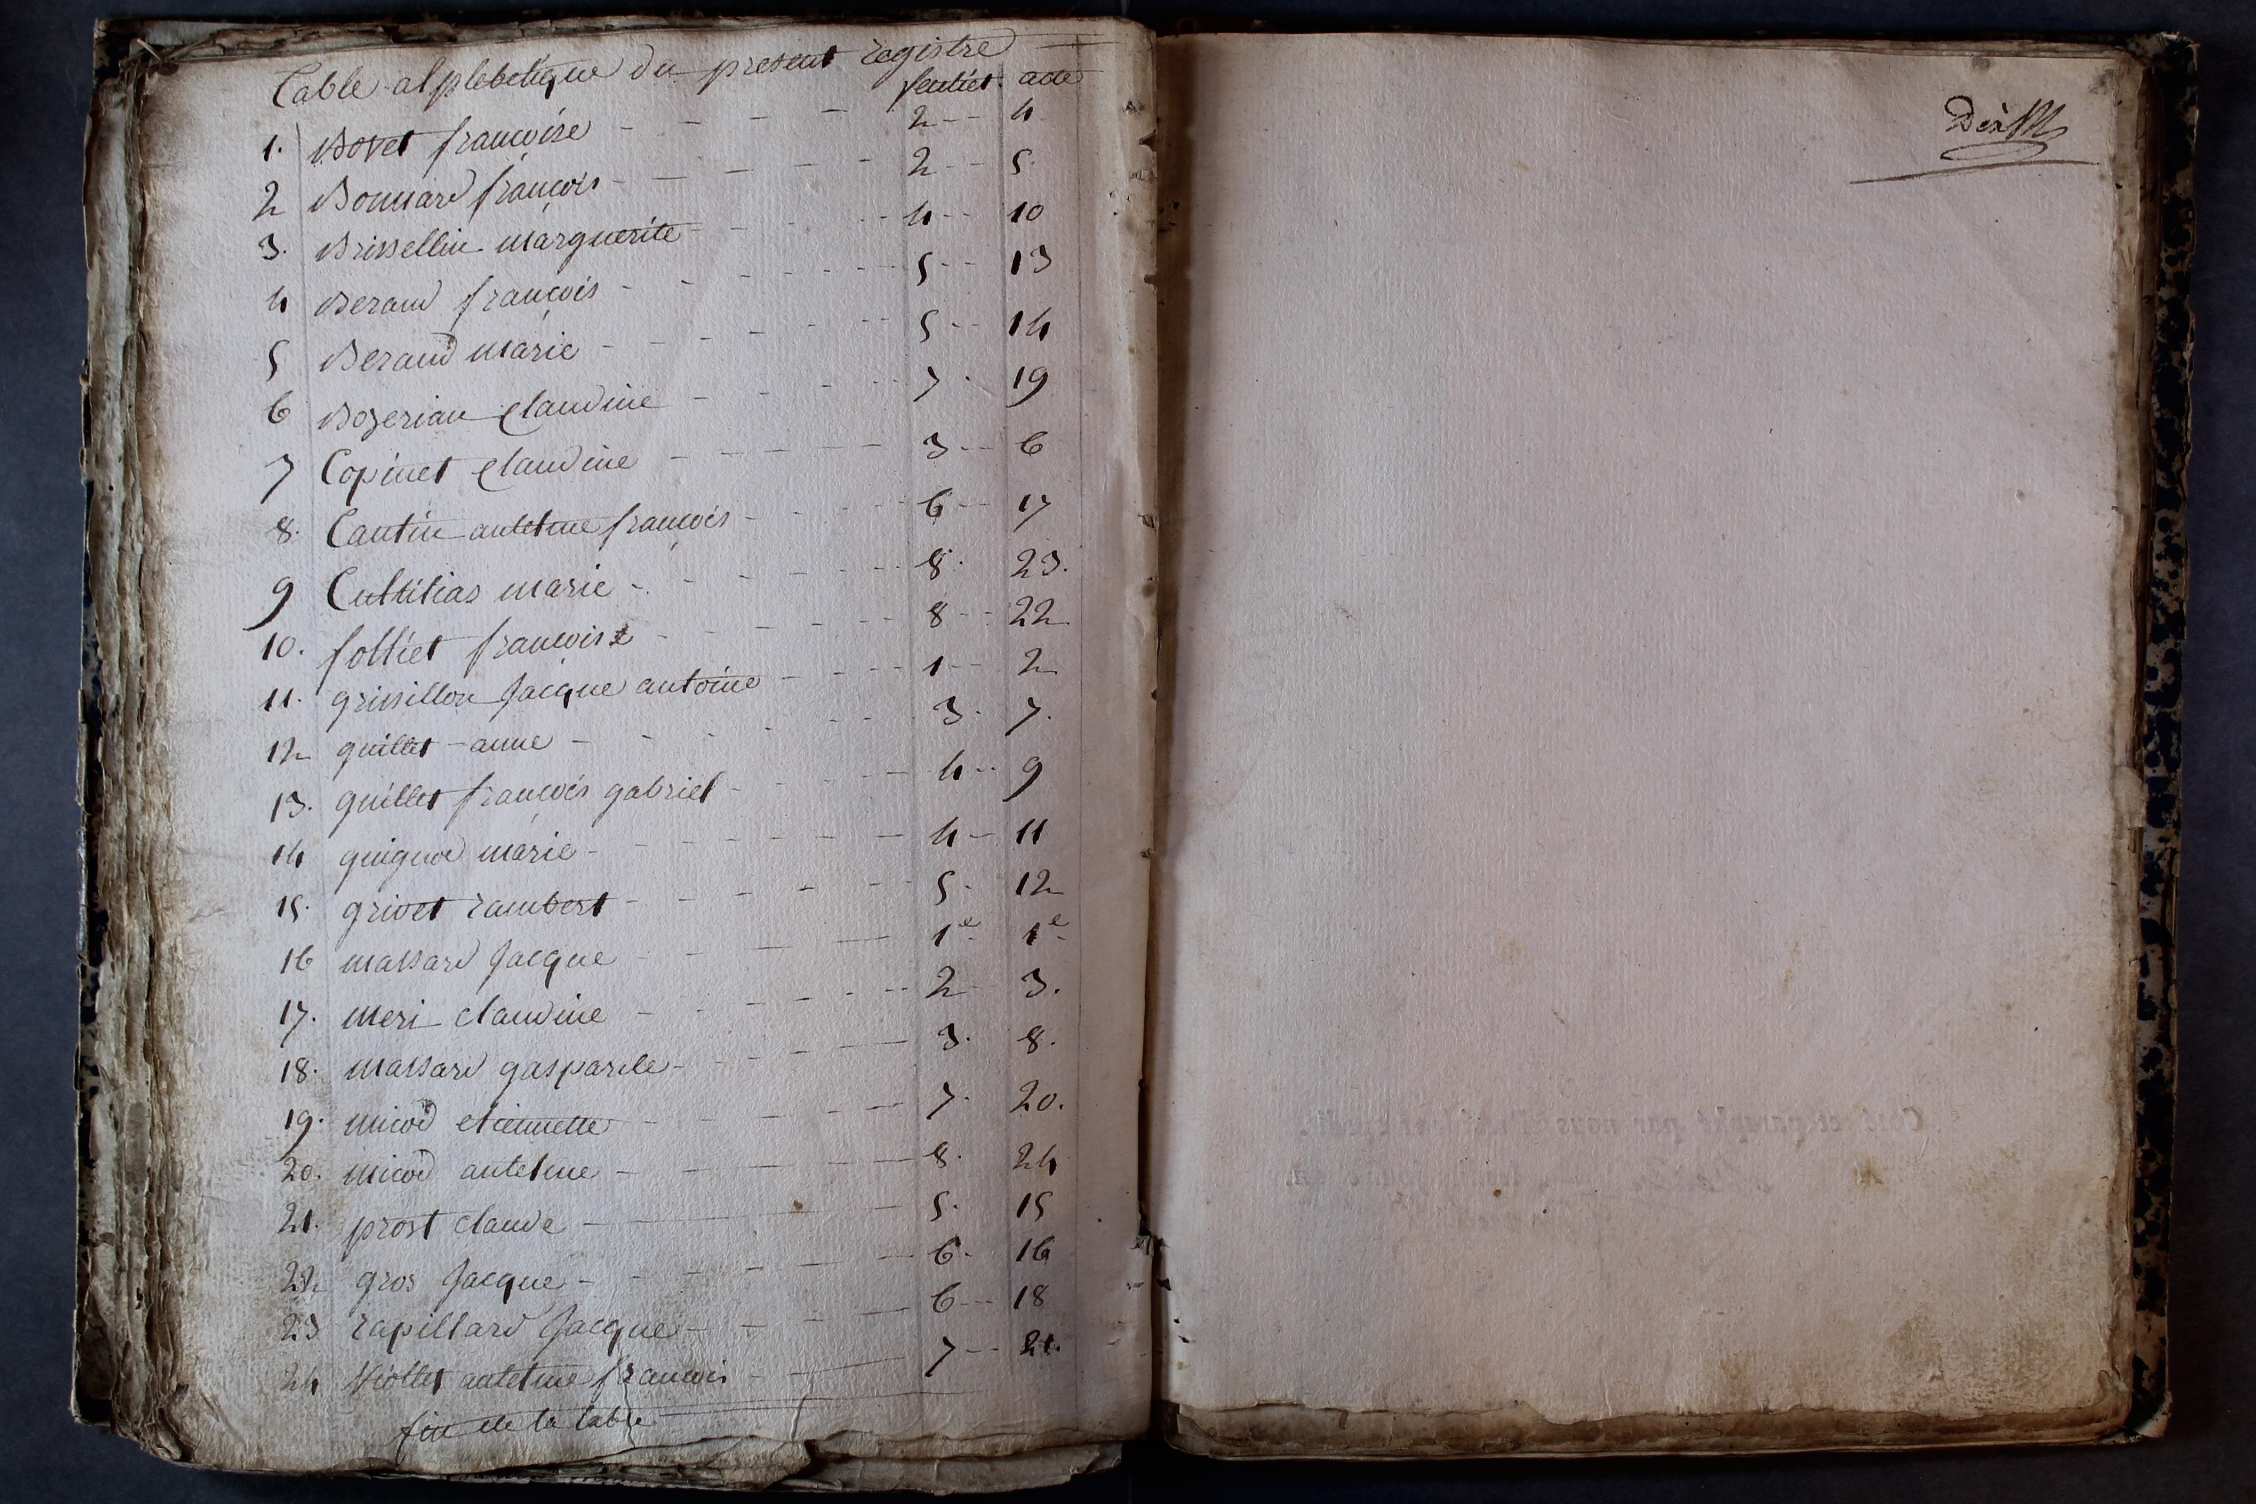 Table alphebetique du present registre
feuliet. acte
1. Bovet francoise - - - - 2 - - 4
2 Bonnard françois - - - - - 2 - - 5.
3. Brissellin marguerite - - - - 4 - - 10
4 Beraud françois - - - - - - 5 - - 13
5 Beraud marie - - - - - - 5 - - 14
6 Bozerian Claudine - - - - - 7 . 19
7 Copinet Claudine - - - - - 3 - - 6
8. Cantin antelme françois - - - - 6 - - 17
9 Cultitias marie - - - - - - 8 . 23.
10. folliet francoise - - - - - 8 - - 22
11. grissillon Jacque antoine - - - - 1 - - 2
12 guillet anne - - - - - - 3 . 7.
13. guillet françois gabriel - - - - 4 - - 9
14 guignod marie - - - - - - 4 - 11
15. grivet rambert - - - - - - 5 . 12
16 massard Jacque - - - - 1e 1e
17. meri claudine - - - - - - 2 - 3.
18. massard gasparde - - - - - 3 . 8.
19. micod etiennette - - - - - 7 . 20.
20. micod antelme - - - - - 8. 24
21. prost claude - - - 5. 15
22 gros Jacque - - - - - - 6. 16
23 rapillard Jacque - - - - 6 - - 18
24 Viollet antelme francois - - - 7 - - 21.
fin de la table